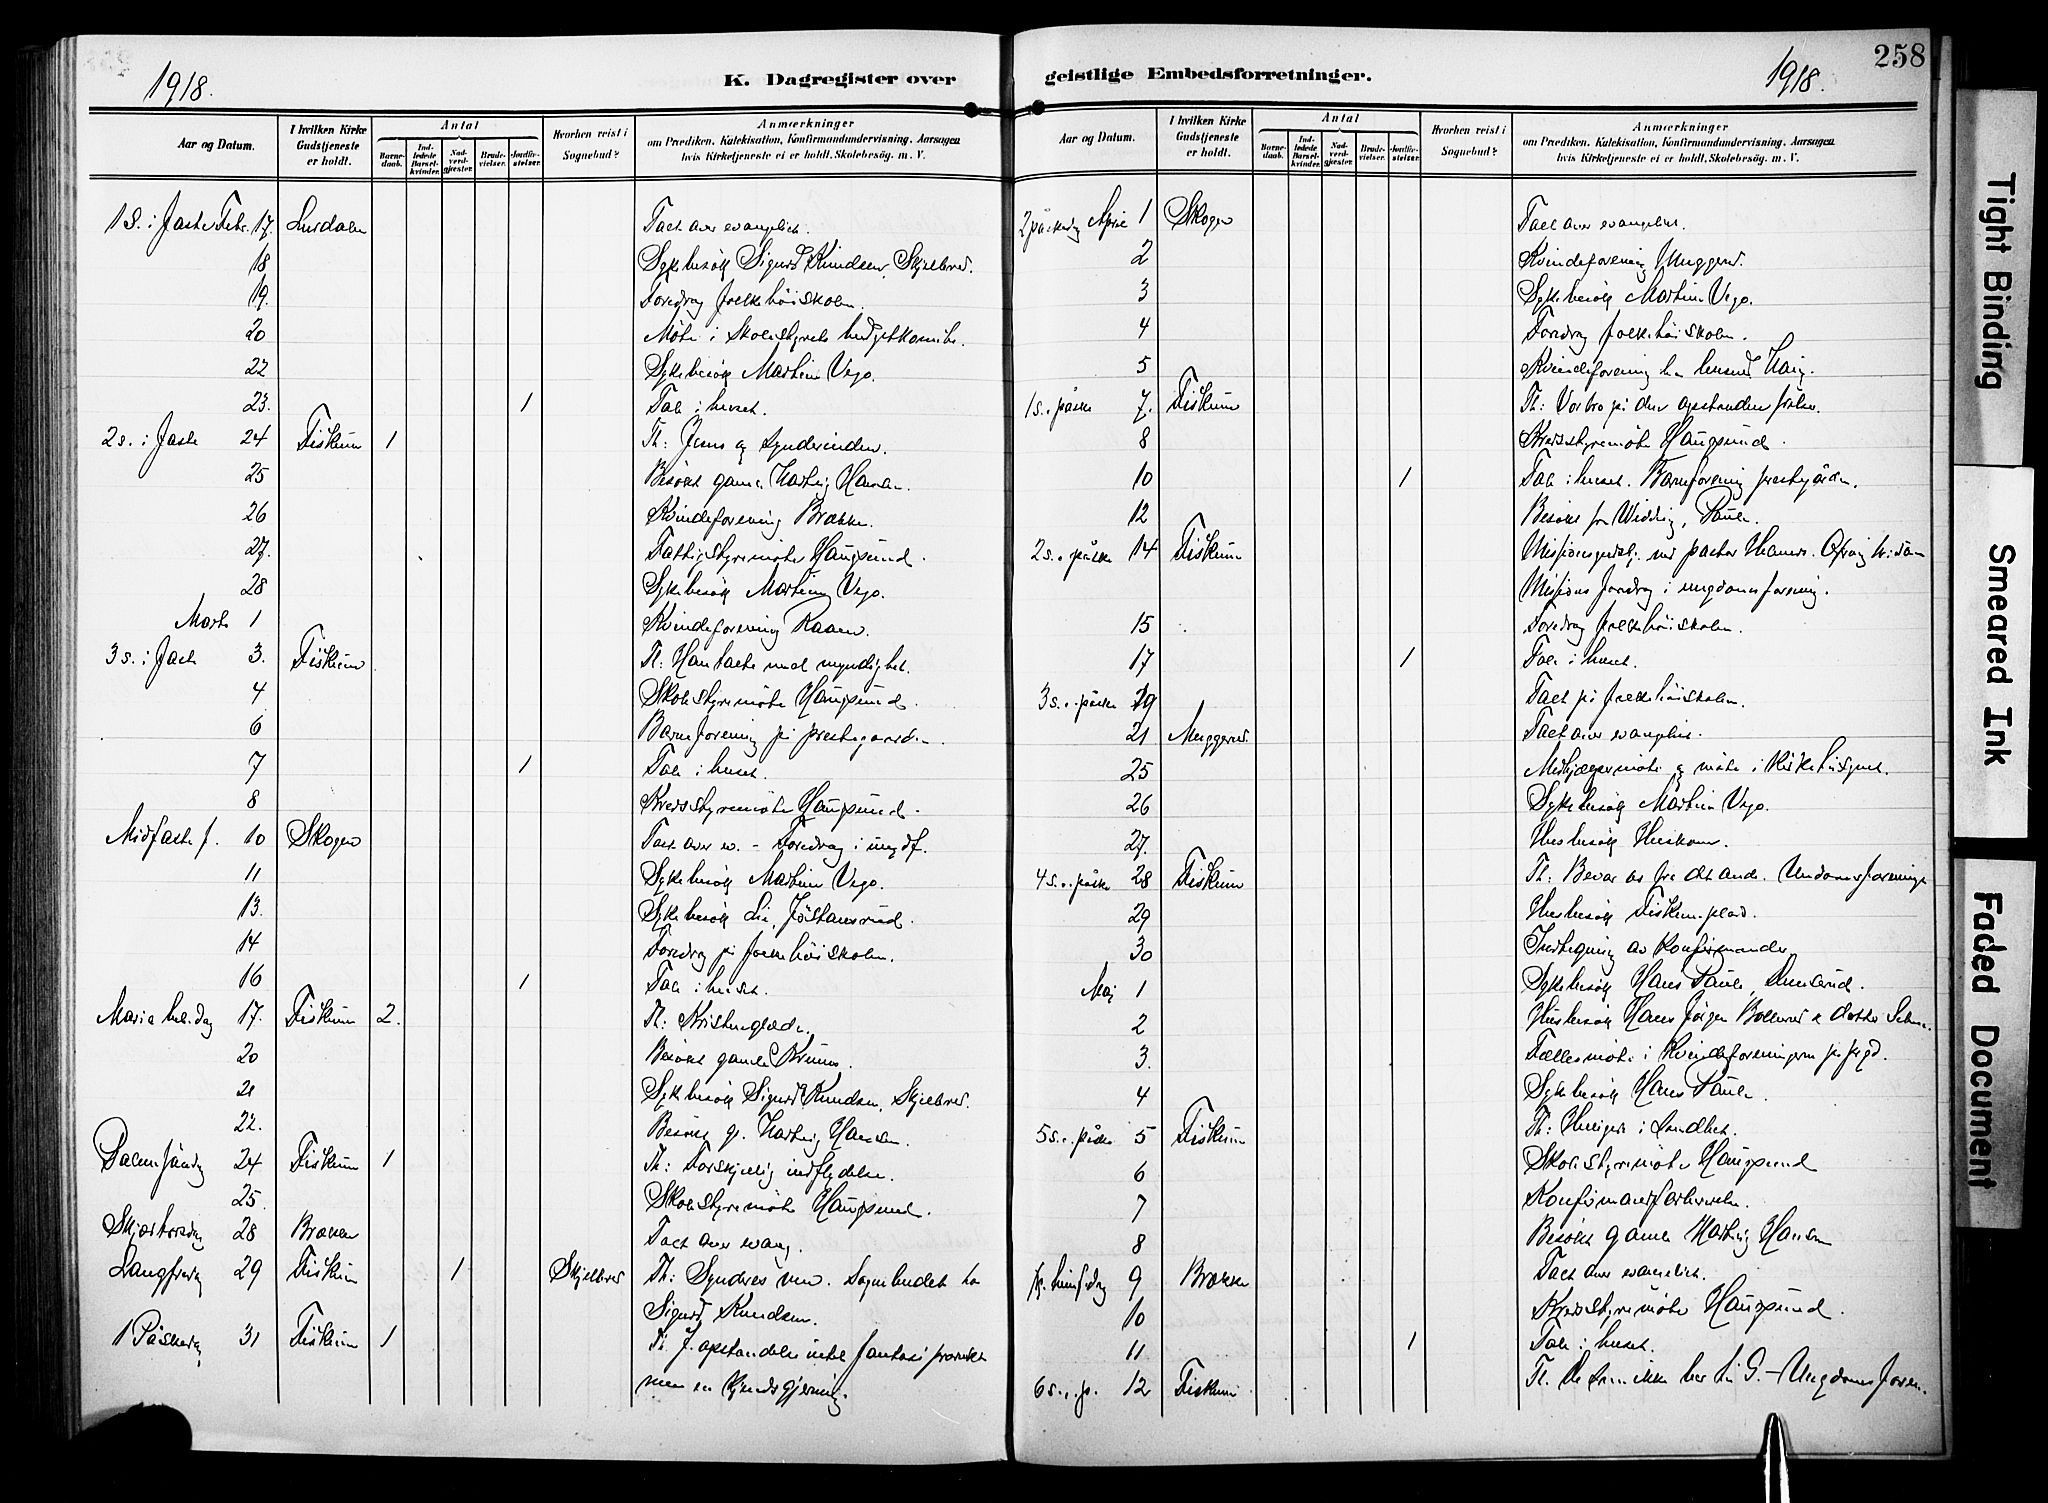 1918.
K. Dagregister over
Aar og Datum.
I hvilken Kirke Gudstjeneste er holdt.
Antal
Barnedaab.
Indledede Barselkvinder.
Nadverdgjæster.
Brudevielser.
Jordfæstelser.
Hvorhen reist i Sognebud?
Anmærkninger
om Prædiken, Katekisation, Konfirmandundervisning, Aarsagen
hvis Kirketjeneste ei er holdt, Skolebesøg, m. V.
1 S. i Faste Febr. 17. Lurdalen Talt over evangeliet.
18 Sykebesøk Sigurd Knudsen, Skjelbred.
19. Foredrag folkehøiskolen.
20 Møte i Skolestyrets budgetkomite.
22 Sykebesøk Martin Vego.
23. 1 Tale i huset.
2 s. i faste 24 Fiskum 1 Th: Jesus og Synderinden.
25 Besøkt gamle Hartvig Hansen.
26 Kvindeforening Brække.
27. Fattigstyremøte Haugsund.
28 Sykebesøk Martin Vego.
Marts 1 Kvindeforening Raaen.
3 s. i faste 3. Fiskum Th: Han talte med myndighet.
4 Skolestyremøte Haugsund.
6 Barneforening på prestegaarden.
7 1 Tale i huset.
8 Kredsstyremøte Haugsund.
Midfaste s. 10 Skogen Talt over ev. - Foredrag i ungdf.
11 Sykebesøk Martin Vego.
13. Sykebesøk Lie,
14 Foredrag på folkehøiskolen.
16 1 Tale i huset.
Maria bud.dag 17. Fiskum 2. Th: Kristenglæde.
20 Besøkt gamle
21 Sykebesøk Sigurd Knudsen, Skjelbred.
22. Besøkt g. Hartvig Hansen.
Palmesøndag 24 Fiskum 1 Th: Forskjellig indflydelse.
25. Skolestyremøte Haugsund.
Skjærtorsdag 28 Brække Talt over evang.
Langfredag 29 Fiskum 1 Skjelbred Th: Synderes ven. Sognebudet hos
Sigurd Knudsen.
1 Påskedag 31 Fiskum 1 Th. J. opstandelse intet fantasi
men en kjendsgjerning.
258
1918.
geistlige Embedsforretninger.
Aar og Datum.
I hvilken Kirke Gudstjeneste er holdt.
Antal
Barnedaab.
Indledede Barselkvinder.
Nadverdgjæster.
Brudevielser.
Jordfæstelser.
Hvorhen reist i Sognebud?
Anmærkninger
om Prædiken, Katekisation, Konfirmandundervisning, Aarsagen
hvis Kirketjeneste ei er holdt, Skolebesög, m. V.
2 påskedag April 1 Skogen Talt over evangeliet.
2 Kvindeforening Muggerud.
3 Sykebesøk Martin Vego.
4 Foredrag folkehøiskolen.
5 Kvindeforening hos
1 s. e. påske 7. Fiskum Th: Vor tro på den opstandne frelser.
8 Kredsstyremøte Haugsund.
10 1 Tale i huset. Barneforening prestegården.
12 Besøkt fru Widding,
2 s. e. påske 14 Fiskum Missionsgudstj. ved pastor
Missions foredrag i ungdomsforening.
15 Foredrag folkehøiskolen.
17 1 Tale i huset.
3 s. e. påske 19 Talt på folkehøiskolen.
21 Muggerud. Talt over evangeliet.
25 Medhjælpermøte og møte i Kirketilsynet.
26 Sykebesøk Martin Vego.
27. Husbesøk
4 s. e. påske 28 Fiskum Th: Bevar os fra det onde. Ungdomsforening
29 Husbesøk Fiskum
30 Indtegning av Konfirmander.
Maj 1 Sykebesøk Hans
2 Husbesøk Hans Jørgen
3. Fællesmøte i Kvindeforeningen på
4 Sykebesøk Hans
5 s. e. påske 5 Fiskum Th:
6 Skolestyremøte Haugsund
7 Konfirmandforberedelse.
8 Besøkt gamle Hartvig Hansen
Kr. himf.dag 9 Brække Talt over evangeliet.
10 Kredsstyremøte Haugsund.
11. 1 Tale i huset.
6 s. e. p. 12 Fiskum Ungdomsforen.
Tight Binding
Smeared Ink
Faded Document